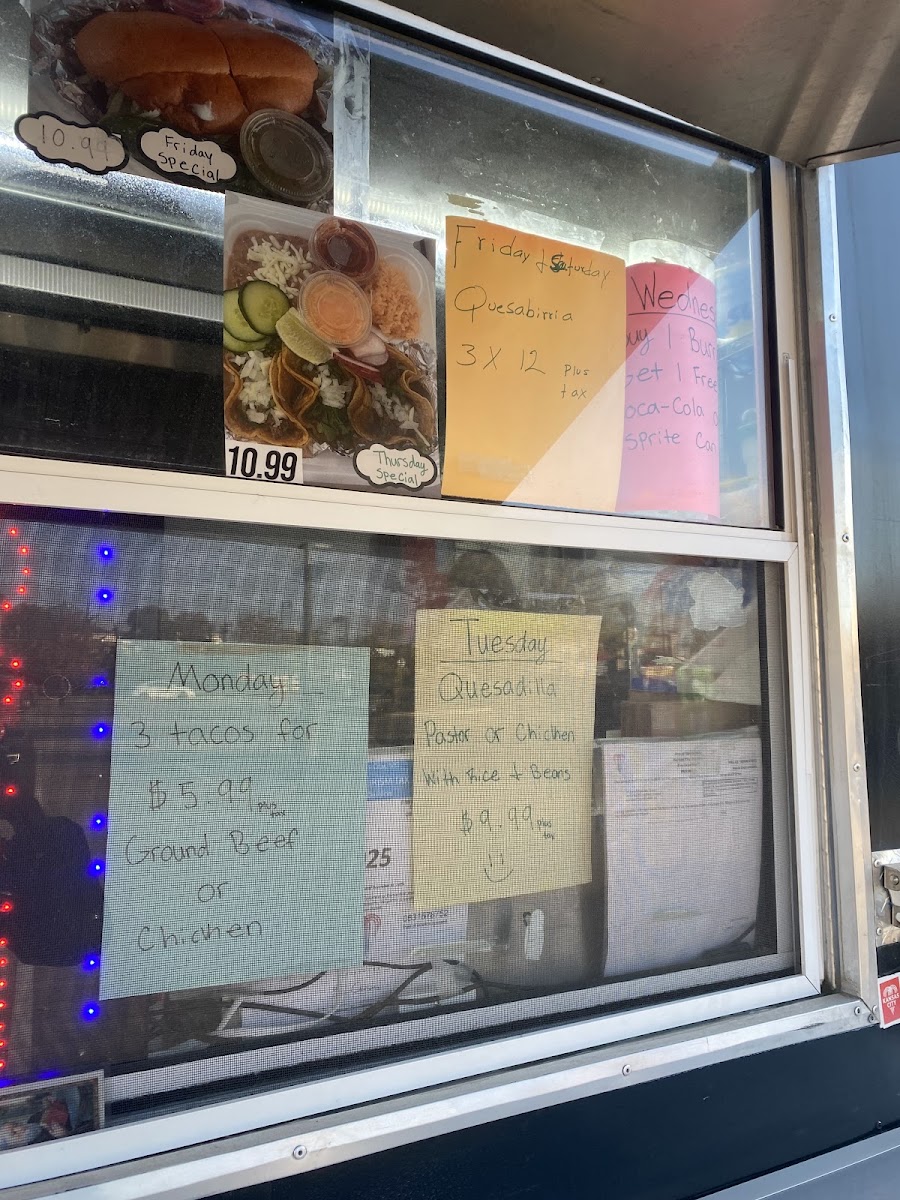 10.99
Friday
Special
10.99
Thursday
Special
Friday & Saturday
Quesabirria
3 X 12 Plus
tax
Wednes
uy 1 Bur
et 1 Free
oca-Cola
Sprite Can
Monday
3 tacos for
$5.99 plus
tax
Ground Beef
or
Chicken
Tuesday
Quesadilla
Pastor or Chicken
With Rice & Beans
$9.99 plus
tax
25
KANSAS
CITY